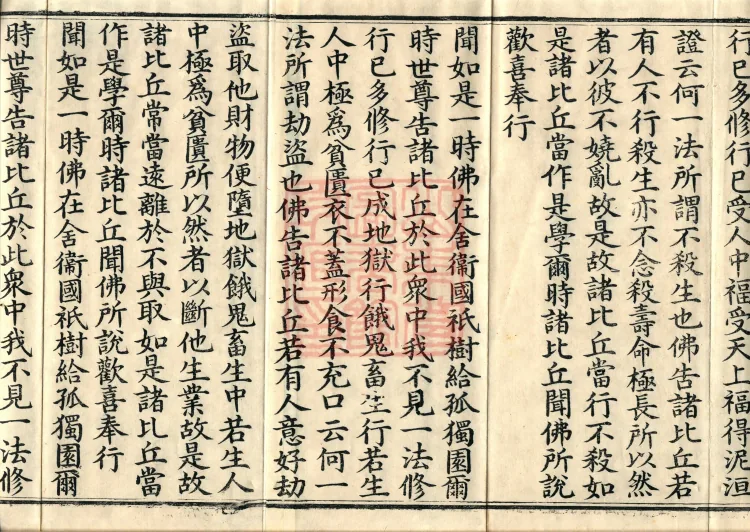 行已多修行已受人中福受天上福得泥洹
證云何一法所謂不殺生也佛告諸比丘若
有人不行殺生亦不念殺壽命極長所以然
者以彼不嬈亂故是故諸比丘當行不殺如
是諸比丘當作是學爾時諸比丘聞佛所說
歡喜奉行
聞如是一時佛在舍衞國祇樹給孤獨園爾
時世尊告諸比丘於此衆中我不見一法修
行已多修行已成地獄行餓鬼畜生行若生
人中極爲貧匱衣不蓋形食不充口云何一
法所謂劫盜也佛告諸比丘若有人意好劫
盜取他財物便墮地獄餓鬼畜生中若生人
中極爲貧匱所以然者以斷他生業故是故
諸比丘常當遠離於不與取如是諸比丘當
作是學爾時諸比丘聞佛所說歡喜奉行
聞如是一時佛在舍衞國祇樹給孤獨園爾
時世尊告諸比丘於此衆中我不見一法修